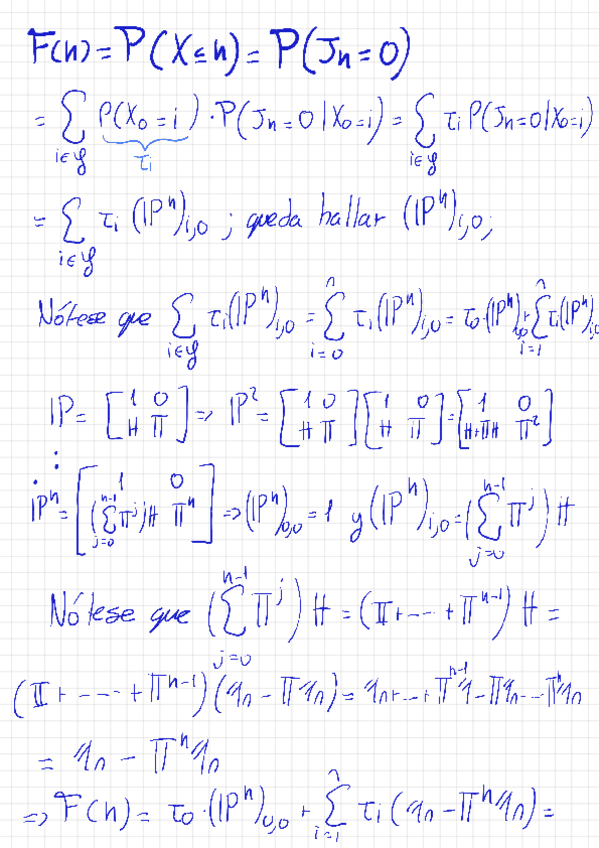 F(n) = P(X ≤ n) = P(J_n = 0)
= ∑_{i∈𝒮} P(X_0 = i) · P(J_n = 0 | X_0 = i) = ∑_{i∈𝒮} τ_i P(J_n = 0 | X_0 = i)
τ_i
= ∑_{i∈𝒮} τ_i (ℙ^n)_{i,0} ; queda hallar (ℙ^n)_{i,0};
Nótese que ∑_{i∈𝒮} τ_i (ℙ^n)_{i,0} = ∑_{i=0}^{n} τ_i (ℙ^n)_{i,0} = τ_0 · (ℙ^n)_{0,0} + ∑_{i=1}^{n} τ_i (ℙ^n)_{i,0}
ℙ = [1 0; H Π] ⇒ ℙ^2 = [1 0; H Π] [1 0; H Π] = [1 0; H+ΠH Π^2]
⋮
ℙ^n = [1 0; (∑_{j=0}^{n-1} Π^j)H Π^n] ⇒ (ℙ^n)_{0,0} = 1 y (ℙ^n)_{i,0} = (∑_{j=0}^{n-1} Π^j) H
Nótese que (∑_{j=0}^{n-1} Π^j) H = (𝕀 + --- + Π^{n-1}) H =
(𝕀 + --- + Π^{n-1}) (𝟙_n - Π𝟙_n) = 𝟙_n + ... + Π^{n-1}𝟙 - Π𝟙_n - ... Π^n𝟙_n
= 𝟙_n - Π^n 𝟙_n
⇒ F(n) = τ_0 · (ℙ^n)_{0,0} + ∑_{i=1}^{n} τ_i (𝟙_n - Π^n𝟙_n) =